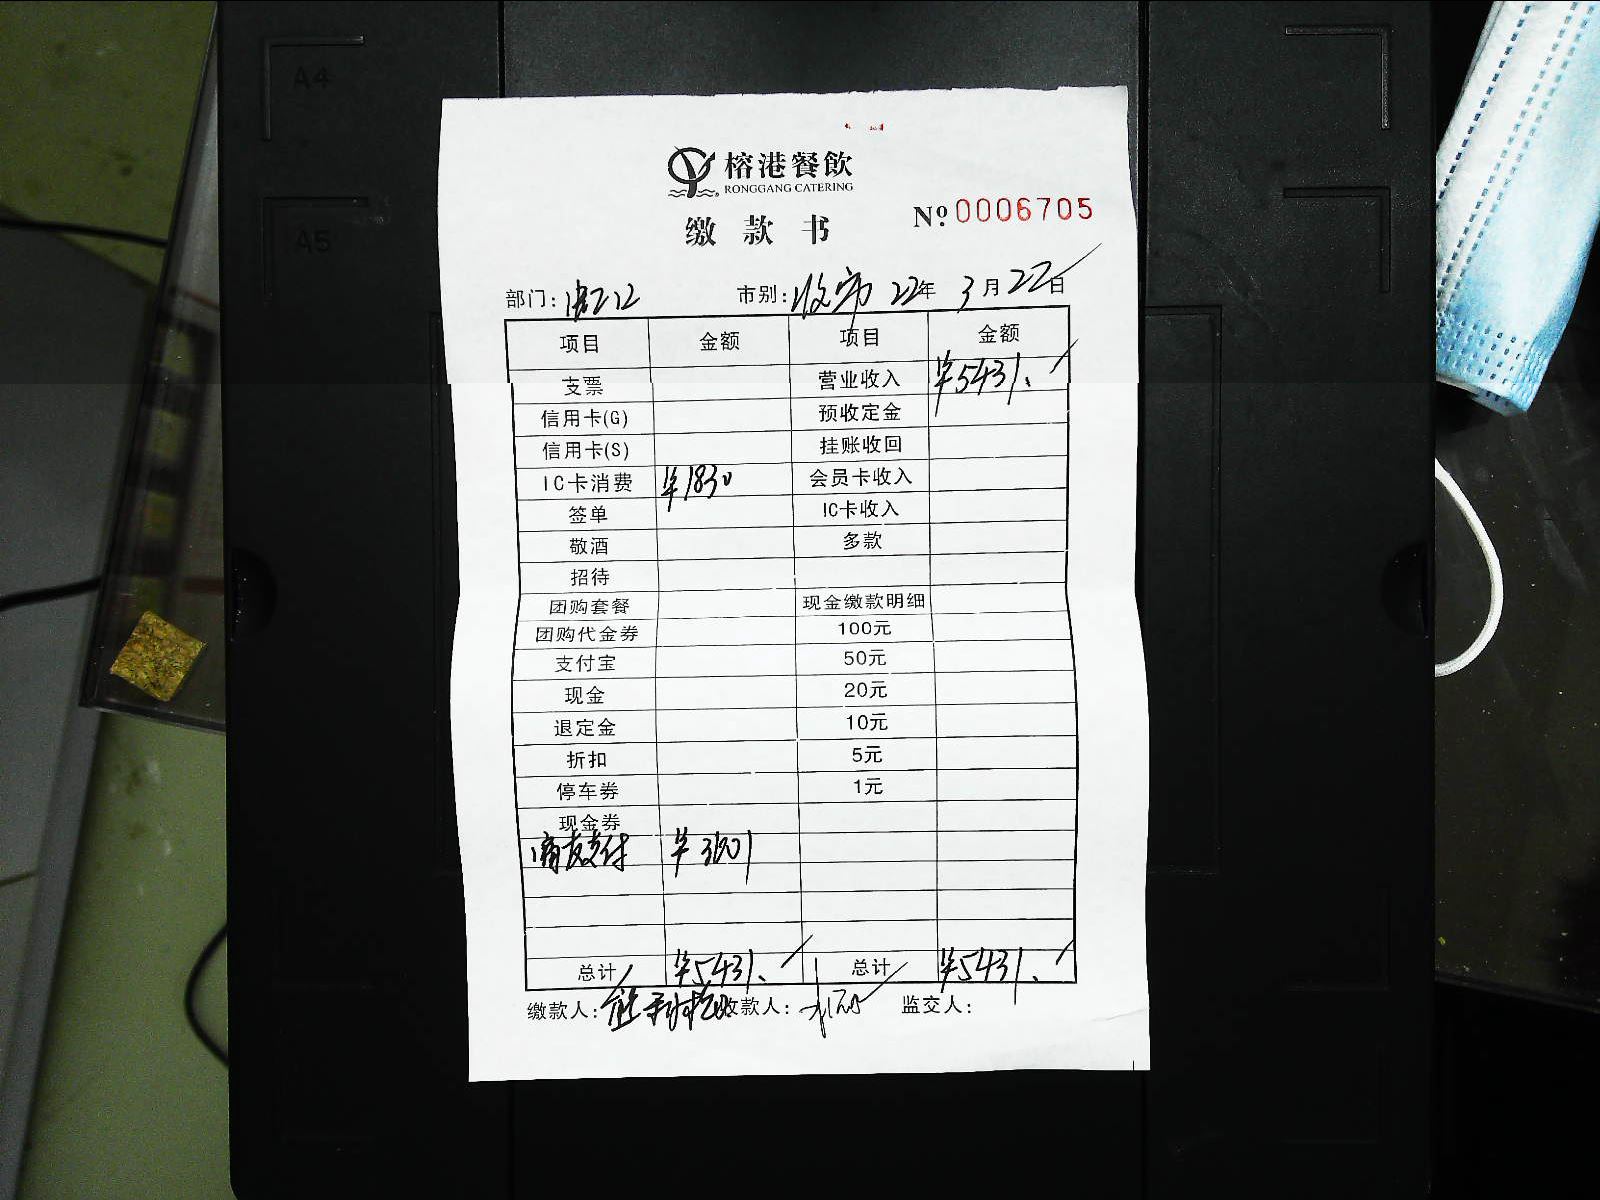 A4
A5
榕港餐飲
RONGGANG CATERING
缴款书
No 0006705
部门: 市别:收市 22年 3月22日
项目 金额 项目 金额
支票 营业收入 ¥5431.
信用卡(G) 预收定金
信用卡(S) 挂账收回
IC卡消费 ¥1830 会员卡收入
签单 IC卡收入
敬酒 多款
招待
团购套餐 现金缴款明细
团购代金券 100元
支付宝 50元
现金 20元
退定金 10元
折扣 5元
停车券 1元
现金券
支付 ¥3601
总计 ¥5431. 总计 ¥5431.
缴款人: 收款人: 监交人: